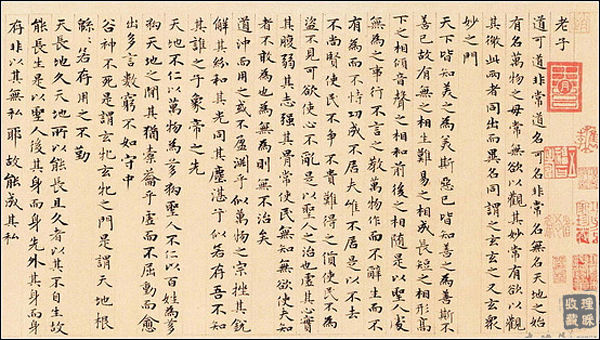 老子
道可道非常道名可名非常名無名天地之始
有名萬物之母常無欲以觀其妙常有欲以觀
其徼此兩者同出而異名同謂之玄玄之又玄衆
妙之門
天下皆知美之為美斯惡已皆知善之為善斯不
善已故有無之相生難易之相成長短之相形高
下之相傾音聲之相和前後之相隨是以聖人處
無為之事行不言之教萬物作而不辭生而不
有為而不恃功成不居夫惟不居是以不去
不尚賢使民不爭不貴難得之貨使民不為
盜不見可欲使心不亂是以聖人之治也虛其心實
其腹弱其志强其骨常使民無知無欲使夫知
者不敢為也為無為則無不治矣
道沖而用之或不盈淵乎似萬物之宗挫其銳
解其紛和其光同其塵湛兮似若存吾不知
其誰之子象帝之先
天地不仁以萬物為芻狗聖人不仁以百姓為芻
狗天地之間其猶橐籥乎虛而不屈動而愈
出多言數窮不如守中
谷神不死是謂玄牝玄牝之門是謂天地根
緜〻若存用之不勤
天長地久天地所以能長且久者以其不自生故
能長生是以聖人後其身而身先外其身而身
存非以其無私耶故能成其私
理睬
收藏